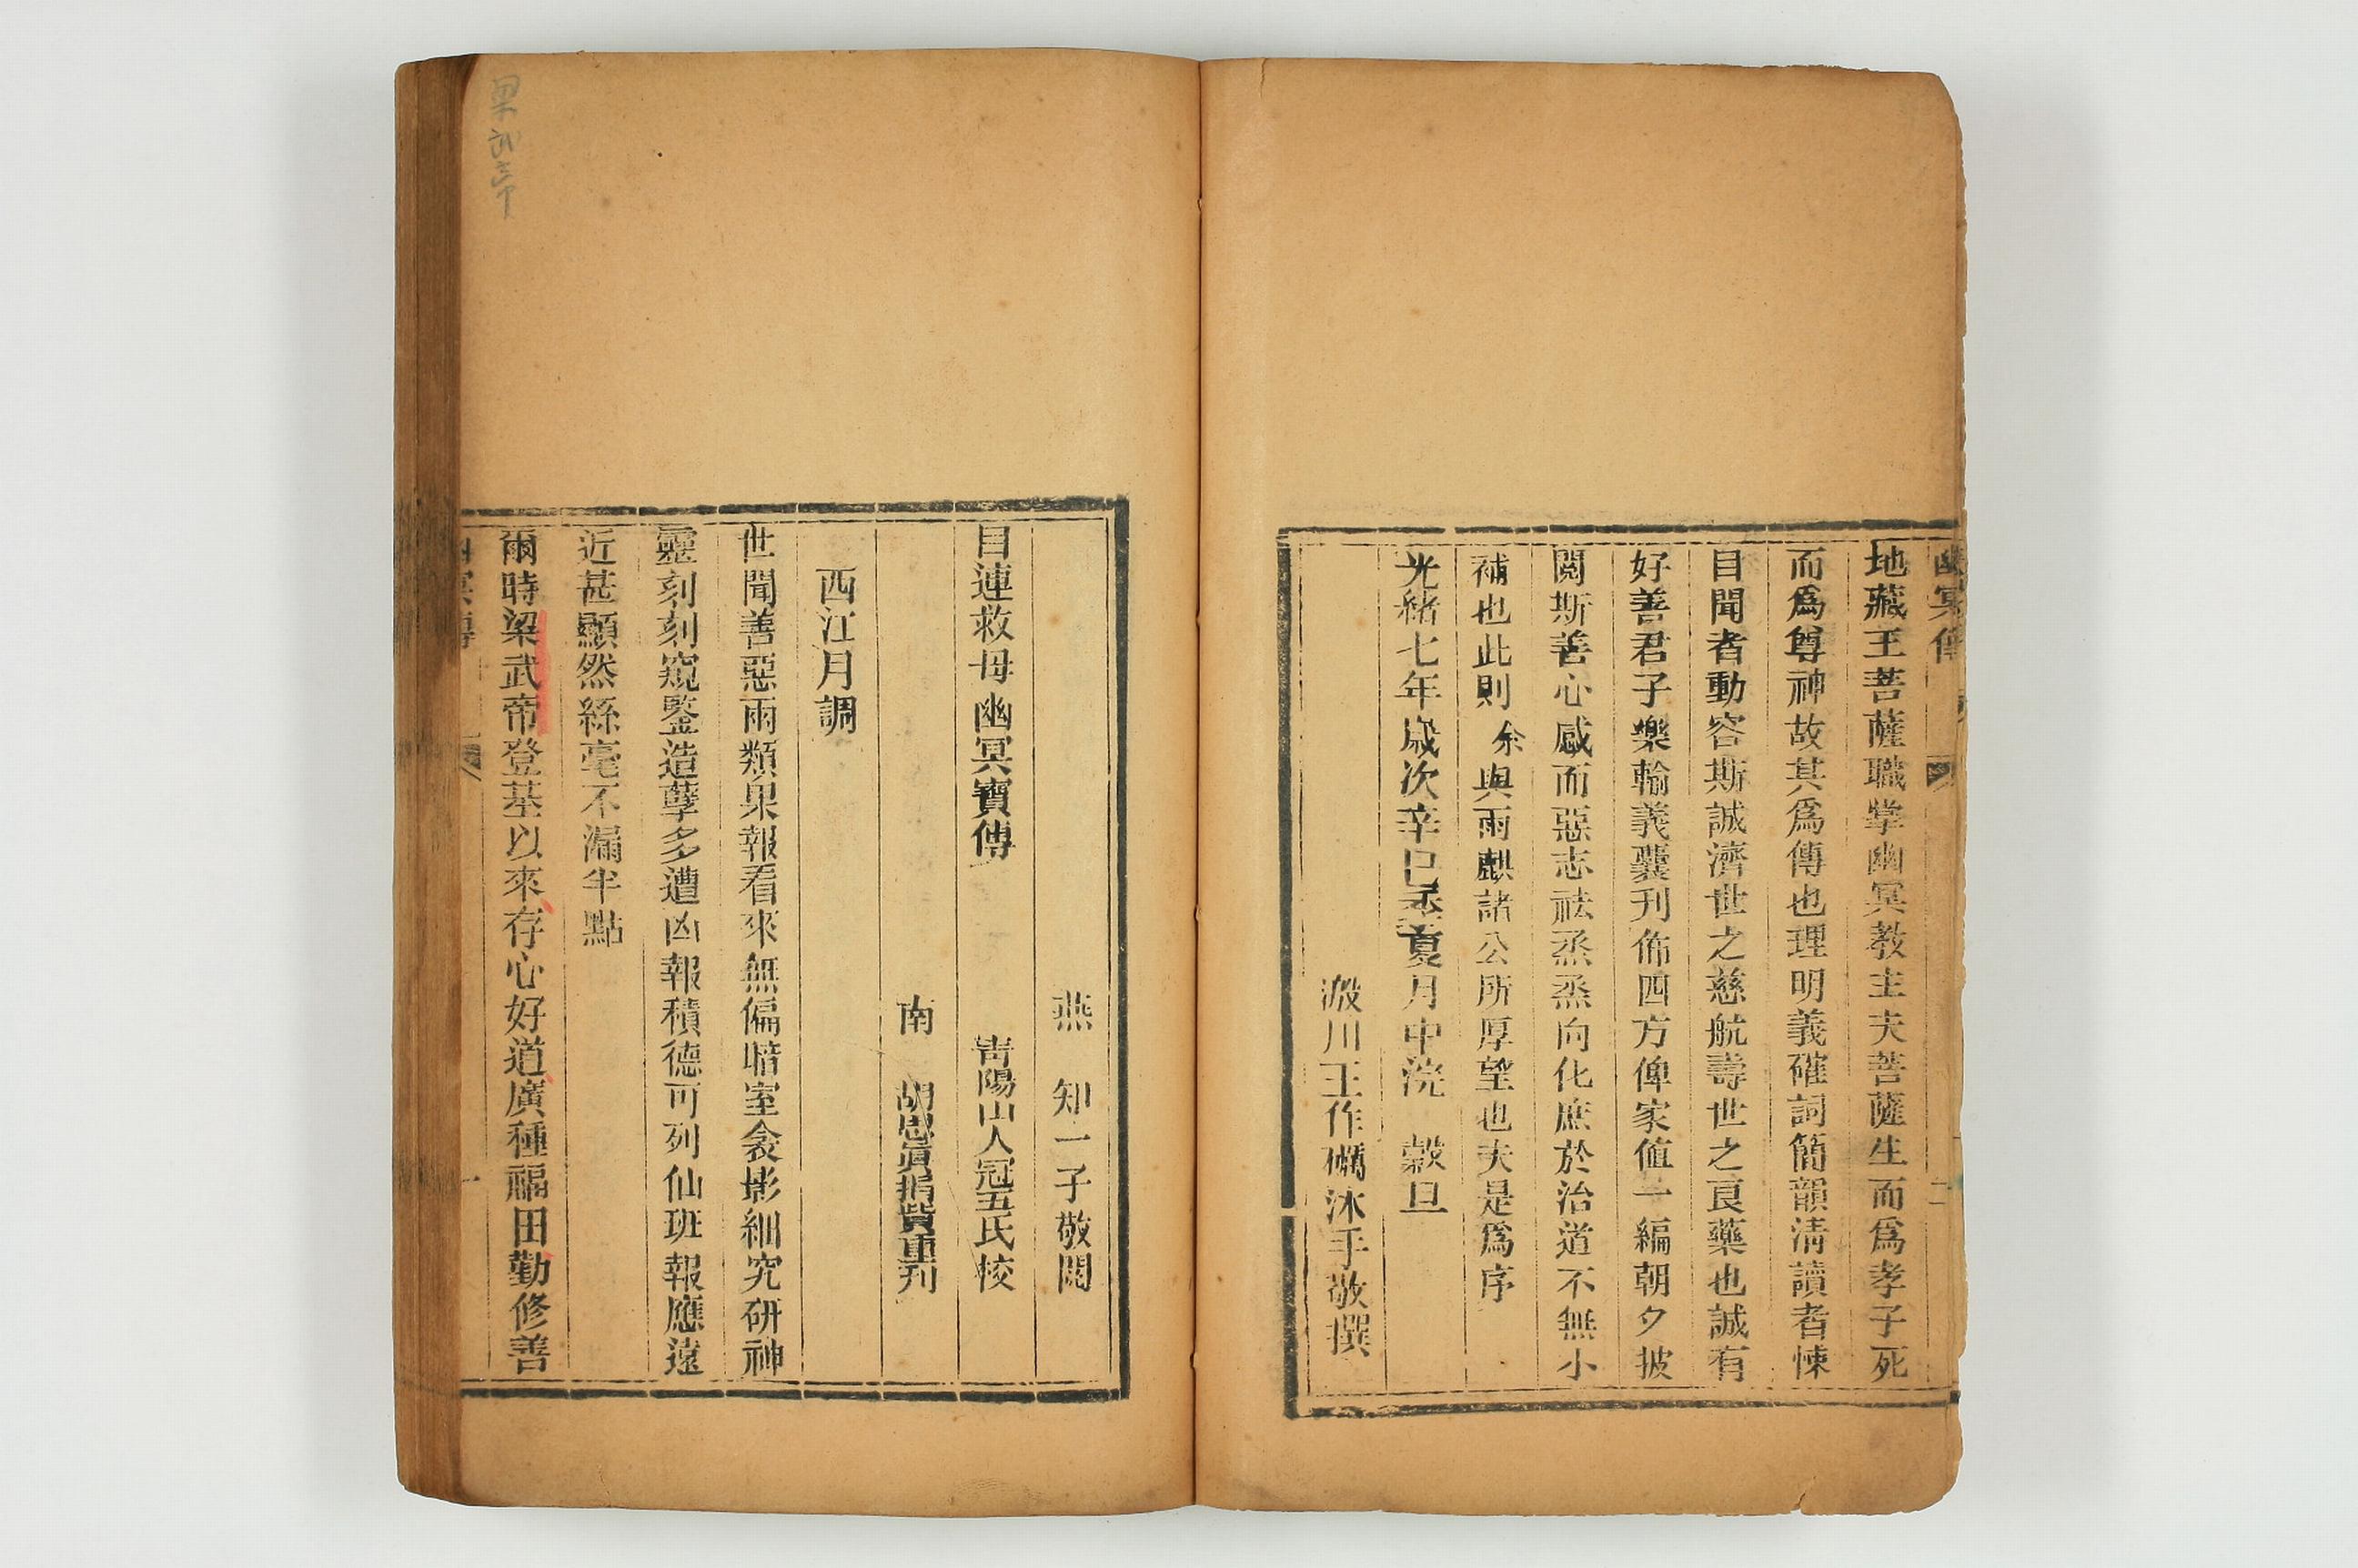 幽冥傳 二
地藏王菩薩職掌幽冥教主夫菩薩生而爲孝子死
而爲尊神故其爲傳也理明義確詞簡韻清讀者悚
目聞者動容斯誠濟世之慈航壽世之良藥也誠有
好善君子樂輸義囊刊佈四方俾家值一編朝夕披
閱斯善心感而惡志祛烝烝向化庶於治道不無小
補也此則余與雨麒諸公所厚望也夫是爲序
光緒七年歲次辛巳季夏月中浣 穀旦
溵川王作礪沐手敬撰
燕 知一子敬閱
目連救母幽冥寶傳 靑陽山人冠五氏校
南 胡思眞捐貲重刋
西江月調
世聞善惡兩類果報看來無偏暗室衾影細究研神
靈刻刻窺鑒造孽多遭凶報積德可列仙班報應遠
近甚顯然絲毫不漏半點
爾時梁武帝登基以來存心好道廣種福田勤修善
梁武帝